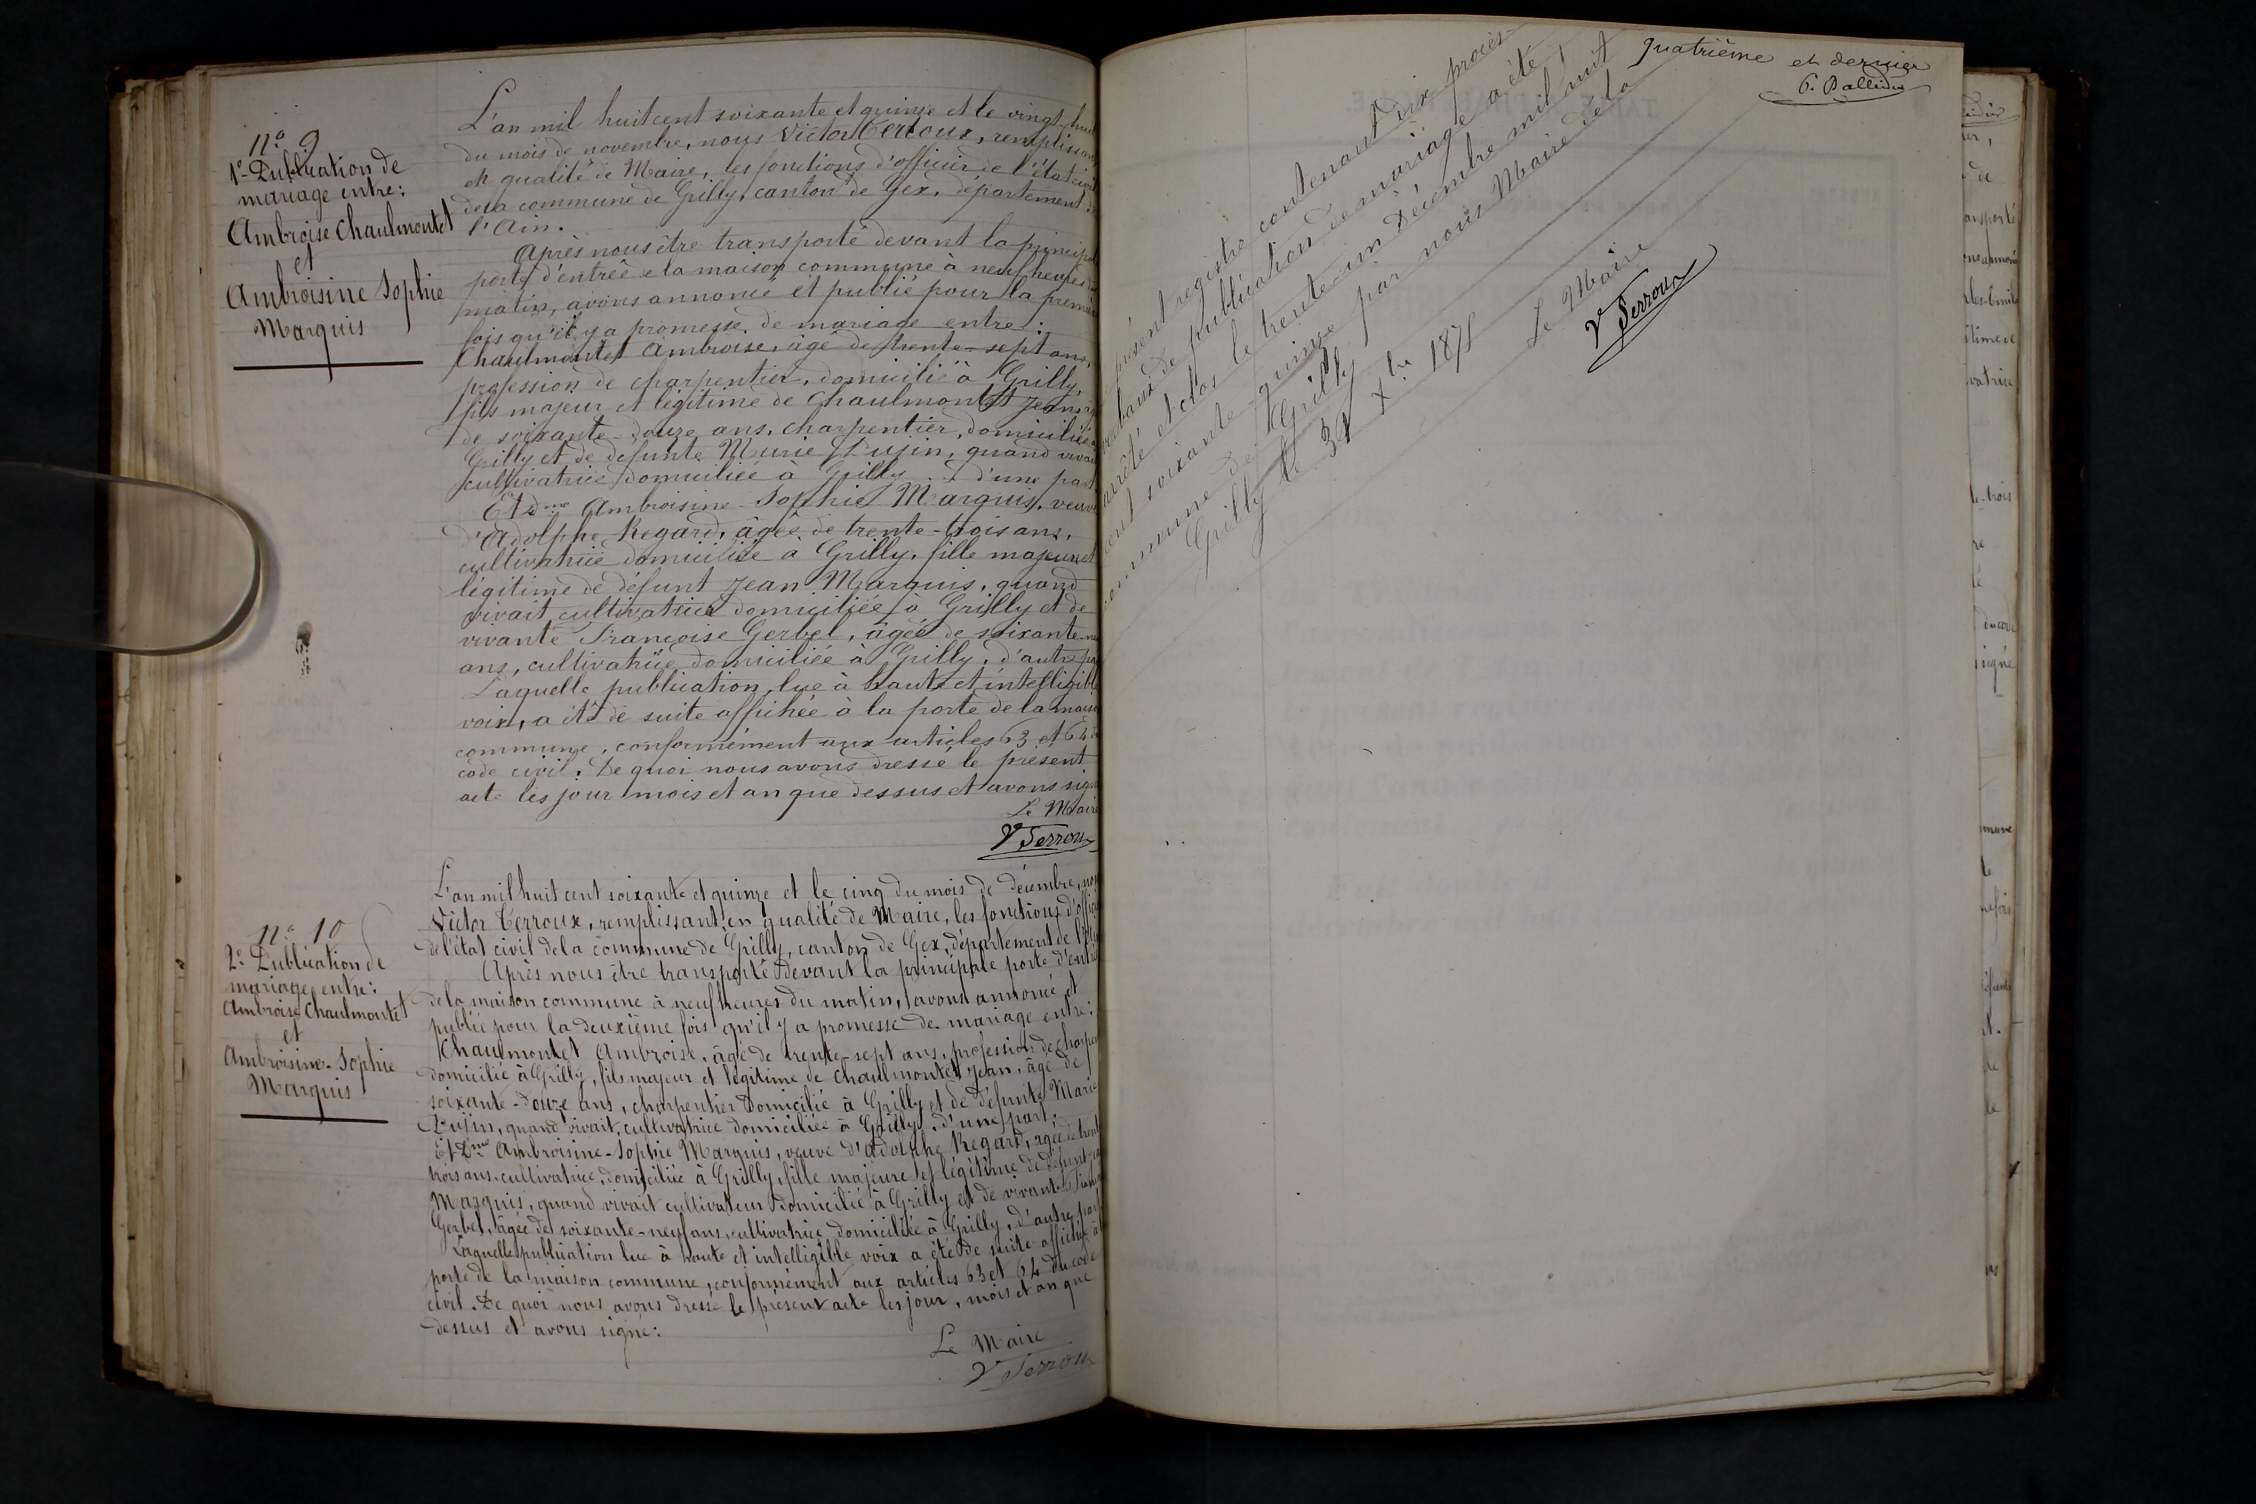 n° 9
1e Publication de
mariage entre:
Ambroise Chaulmontet
et
Ambroisine Sophie
Marquis
L'an mil huit cent soixante et quinze et le vingt-huit
du mois de novembre, nous Victor Terroux, remplissant
en qualité de Maire, les fonctions d'officier de l'état civil
de la commune de Grilly, canton de Gex, département de
l'Ain.
Après nous être transporté devant la principale
porte d'entrée de la maison commune à neuf heures du
matin, avons annoncé et publié pour la première
fois qu'il y a promesse de mariage entre:
Chaulmontet Ambroise, âgé de trente-sept ans,
profession de charpentier, domicilié à Grilly,
fils majeur et légitime de Chaulmontet Jean, âgé
de soixante-douze ans, charpentier, domicilié à
Grilly et de défunte Marie Dujin, quand vivait
cultivatrice domiciliée à Grilly d'une part
Et dme Ambroisine-Sophie Marquis, veuve
d'Adolphe Regard, âgée de trente-trois ans,
cultivatrice domiciliée à Grilly, fille majeure et
légitime de défunt Jean Marquis, quand
vivait cultivatrice domiciliée à Grilly et de
vivante Françoise Gerbel, âgée de soixante-neuf
ans, cultivatrice domiciliée à Grilly, d'autre part
Laquelle publication, lue à haute et intelligible
voix, a été de suite affichée à la porte de la maison
commune, conformément aux articles 63 et 64 du
code civil. De quoi nous avons dressé le présent
acte les jour mois et an que dessus et avons signé
Le Maire
V Terroux
n° 10
2e Publication de
mariage entre:
Ambroise Chaulmontet
et
Ambroisine-Sophie
Marquis
L'an mil huit cent soixante et quinze et le cinq du mois de décembre, nous
Victor Terroux, remplissant en qualité de Maire, les fonctions d'officier
de l'état civil de la commune de Grilly, canton de Gex, département de l'Ain
Après nous être transporté devant la principale porte d'entrée
de la maison commune à neuf heures du matin, avons annoncé et
publié pour la deuxième fois qu'il y a promesse de mariage entre:
Chaulmontet Ambroise, âgé de trente-sept ans, profession de charpentier
domicilié à Grilly, fils majeur et légitime de Chaulmontet Jean, âgé de
soixante-douze ans, charpentier domicilié à Grilly et de défunte Marie
Dujin, quand vivait, cultivatrice domiciliée à Grilly, d'une part.
Et Dme Ambroisine-Sophie Marquis, veuve d'Adolphe Regard, âgée de trente
trois ans cultivatrice, domiciliée à Grilly, fille majeure et légitime de défunt Jean
Marquis, quand vivait cultivateur domicilié à Grilly et de vivante Françoise
Gerbel, âgée de soixante-neuf ans, cultivatrice, domiciliée à Grilly, d'autre part
Laquelle publication lue à haute et intelligible voix a été de suite affichée à la
porte de la maison commune, conformément aux articles 63 et 64 du code
civil. De quoi nous avons dressé le présent acte les jour, mois et an que
dessus et avons signé:
Le Maire
V Terroux
quatrième et dernier
présent registre contenant dix procès-
verbaux de publication de mariage a été
arrêté et clos le trente-un Décembre mil huit
cent soixante-quinze par nous Maire de la
commune de Grilly
Grilly le 31 Xbre 1875
Le Maire
V Terroux